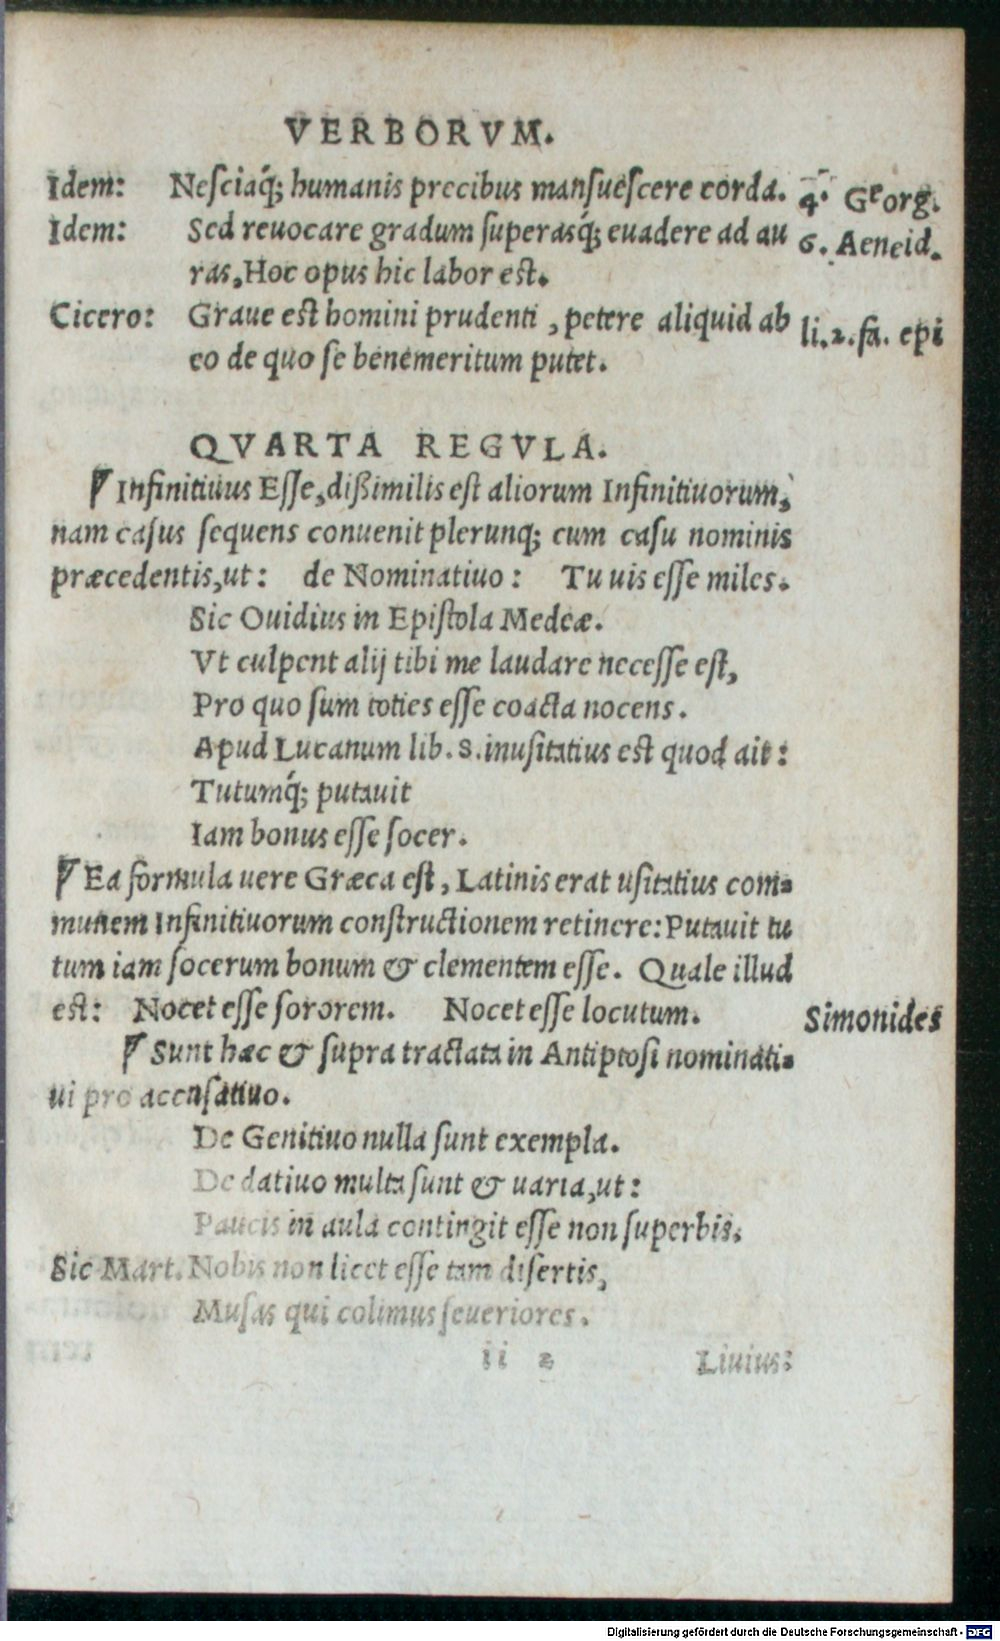 VERBORVM.
Idem: Nesciaq́; humanis precibus mansuescere corda. 4. Georg.
Idem: Sed reuocare gradum superasq́; euadere ad au 6. Aeneid.
ras, Hoc opus hic labor est.
Cicero: Graue est homini prudenti, petere aliquid ab li. 2. fa. epi
eo de quo se benemeritum putet.
QVARTA REGVLA.
Infinitiuus Esse, dißimilis est aliorum Infinitiuorum,
nam casus sequens conuenit plerunq; cum casu nominis
præcedentis, ut: de Nominatiuo: Tu uis esse miles.
Sic Ouidius in Epistola Medeæ.
Vt culpent alij tibi me laudare necesse est,
Pro quo sum toties esse coacta nocens.
Apud Lucanum lib. 8. inusitatius est quod ait:
Tutumq́; putauit
Iam bonus esse socer.
Ea formula uere Græca est, Latinis erat usitatius com=
munem Infinitiuorum constructionem retinere: Putauit tu
tum iam socerum bonum & clementem esse. Quale illud
est: Nocet esse sororem. Nocet esse locutum. Simonides
Sunt hæc & supra tractata in Antiptosi nominati=
ui pro accusatiuo.
De Genitiuo nulla sunt exempla.
De datiuo multa sunt & uaria, ut:
Paucis in aula contingit esse non superbis.
Sic Mart. Nobis non licet esse tam disertis,
Musas qui colimus seueriores.
ii 2 Liuius:
Digitalisierung gefördert durch die Deutsche Forschungsgemeinschaft - DFG